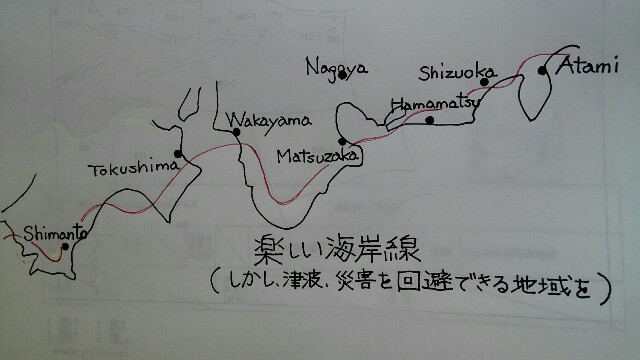 Nagoya
Shizuoka
Atami
Hamamatsu
Wakayama
Matsuzaka
Tokushima
Shimanto
楽しい海岸線
(しかし、津波、災害を回避できる地域を)